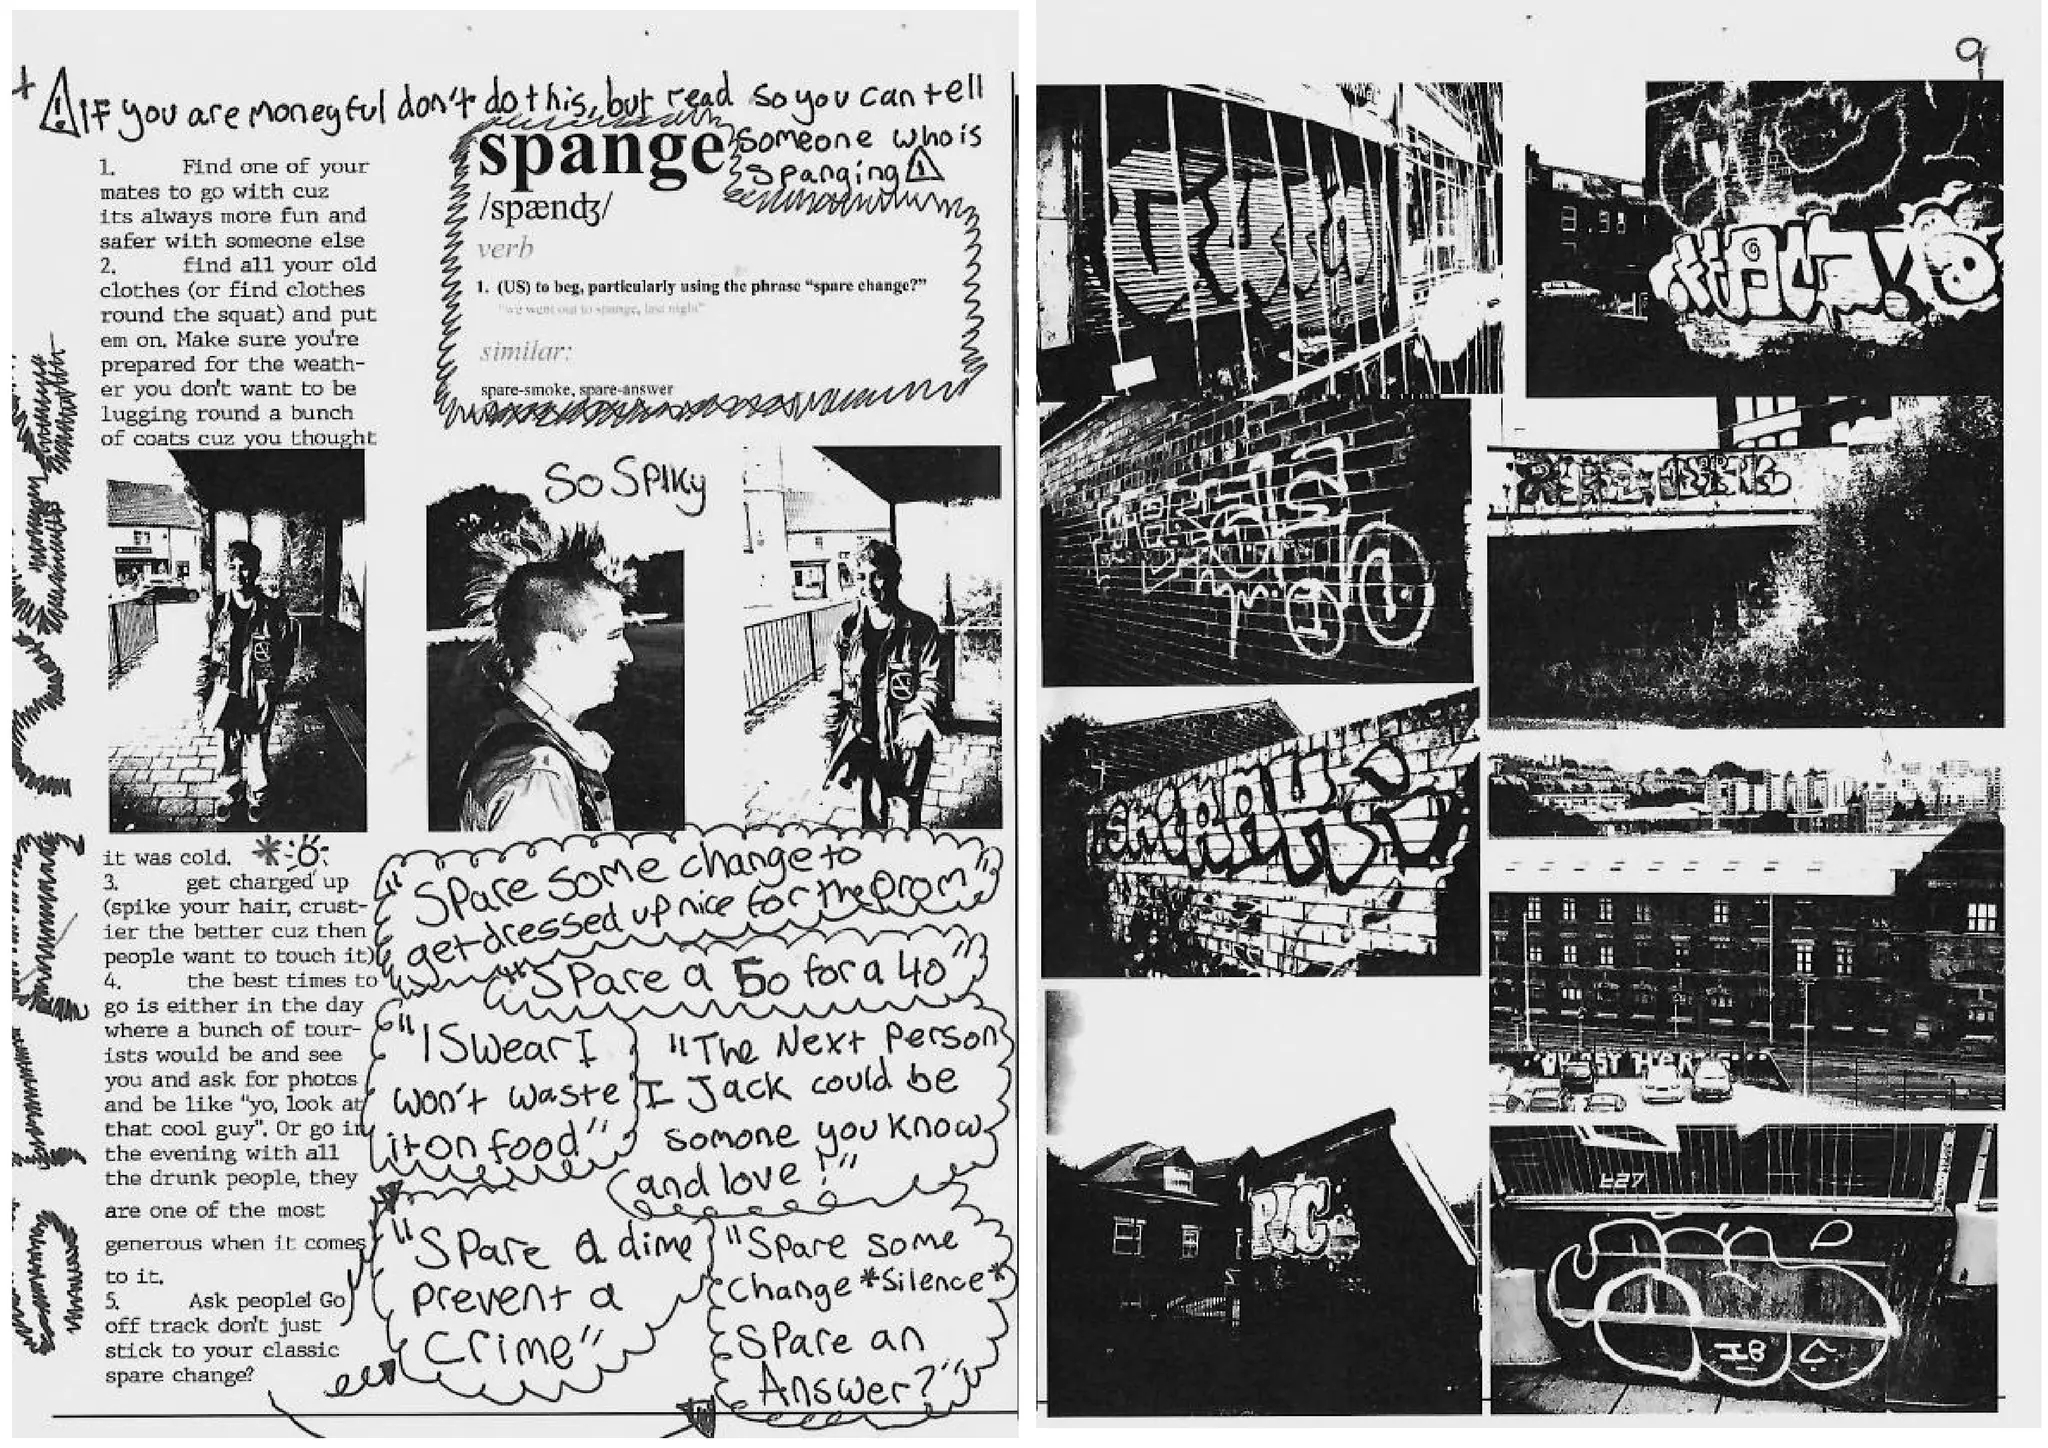 ⚠ If you are moneyful don't do this, but read so you can tell
someone who is
spanging ⚠
1. Find one of your
mates to go with cuz
its always more fun and
safer with someone else
2. find all your old
clothes (or find clothes
round the squat) and put
em on. Make sure you're
prepared for the weath-
er you don't want to be
lugging round a bunch
of coats cuz you thought
spange
/spændʒ/
verb
1. (US) to beg, particularly using the phrase "spare change?"
"we went out to spange, last night"
similar:
spare-smoke, spare-answer
So SPIKy
it was cold.
3. get charged up
(spike your hair, crust-
ier the better cuz then
people want to touch it)
4. the best times to
go is either in the day
where a bunch of tour-
ists would be and see
you and ask for photos
and be like "yo, look at
that cool guy". Or go in
the evening with all
the drunk people, they
are one of the most
generous when it comes
to it.
5. Ask people! Go
off track don't just
stick to your classic
spare change?
"Spare some change to
get dressed up nice for the prom"
"Spare a 50 for a 40"
"I Swear I
won't waste
it on food"
"The Next Person
I Jack could be
somone you know
and love!"
"Spare a dime
prevent a
crime"
"Spare some
change *Silence*
Spare an
Answer?"
9
PLC